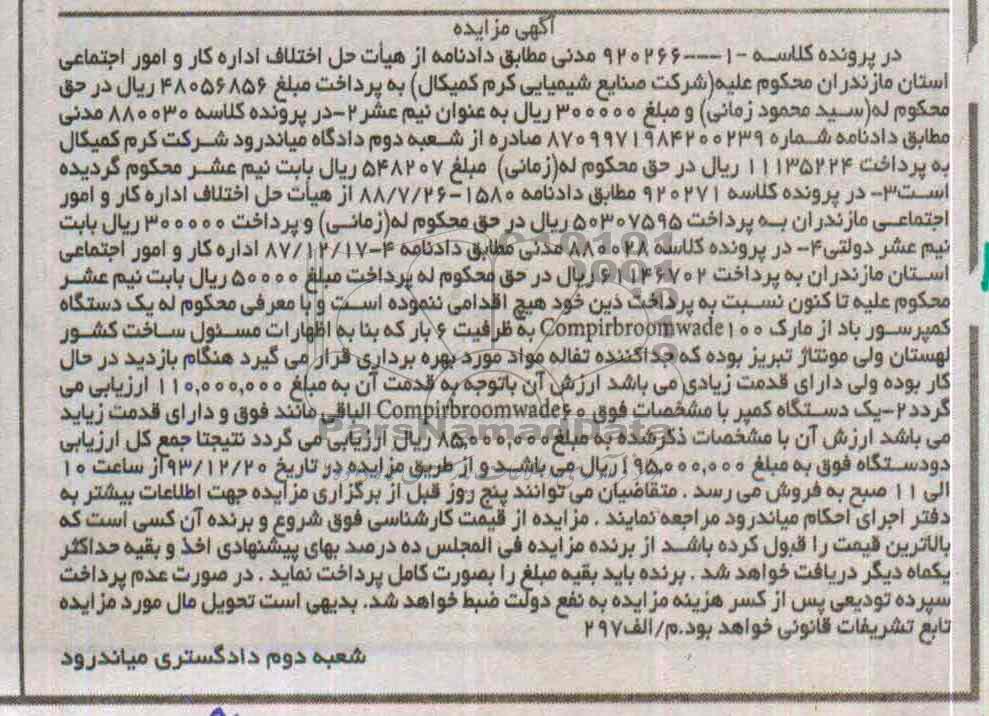 آگهی مزایده
در پرونده کلاسه -1---920266 مدنی مطابق دادنامه از هیأت حل اختلاف اداره کار و امور اجتماعی
استان مازندران محکوم علیه(شرکت صنایع شیمیایی کرم کمیکال) به پرداخت مبلغ 48056856 ریال در حق
محکوم له(سید محمود زمانی) و مبلغ 300000 ریال به عنوان نیم عشر 2-در پرونده کلاسه 880030 مدنی
مطابق دادنامه شماره 8709971984200239 صادره از شعبه دوم دادگاه میاندرود شرکت کرم کمیکال
به پرداخت 11135224 ریال در حق محکوم له(زمانی) مبلغ 548207 ریال بابت نیم عشر محکوم گردیده
است3- در پرونده کلاسه 920271 مطابق دادنامه 1580-88/7/26 از هیأت حل اختلاف اداره کار و امور
اجتماعی مازندران به پرداخت 50307595 ریال در حق محکوم له(زمانی) و پرداخت 300000 ریال بابت
نیم عشر دولتی4- در پرونده کلاسه 881028 مدنی مطابق دادنامه 4-87/12/17 اداره کار و امور اجتماعی
استان مازندران به پرداخت 61146702 ریال در حق محکوم له پرداخت مبلغ 50000 ریال بابت نیم عشر
محکوم علیه تا کنون نسبت به پرداخت دین خود هیچ اقدامی ننموده است و با معرفی محکوم له یک دستگاه
کمپرسور باد از مارک Compirbroomwade100 به ظرفیت 6 بار که بنا به اظهارات مسئول ساخت کشور
لهستان ولی مونتاژ تبریز بوده که جداکننده تفاله مواد مورد بهره برداری قرار می گیرد هنگام بازدید در حال
کار بوده ولی دارای قدمت زیادی می باشد ارزش آن باتوجه به قدمت آن به مبلغ 110,000,000 ارزیابی می
گردد2-یک دستگاه کمپر با مشخصات فوق Compirbroomwade60 الباقی مانند فوق و دارای قدمت زیاید
می باشد ارزش آن با مشخصات ذکرشده به مبلغ 85,000,000 ریال ارزیابی می گردد نتیجتا جمع کل ارزیابی
دودستگاه فوق به مبلغ 195,000,000 ریال می باشد و از طریق مزایده در تاریخ 93/12/20 از ساعت 10
الی 11 صبح به فروش می رسد . متقاضیان می توانند پنج روز قبل از برگزاری مزایده جهت اطلاعات بیشتر به
دفتر اجرای احکام میاندرود مراجعه نمایند . مزایده از قیمت کارشناسی فوق شروع و برنده آن کسی است که
بالاترین قیمت را قبول کرده باشد از برنده مزایده فی المجلس ده درصد بهای پیشنهادی اخذ و بقیه حداکثر
یکماه دیگر دریافت خواهد شد . برنده باید بقیه مبلغ را بصورت کامل پرداخت نماید . در صورت عدم پرداخت
سپرده تودیعی پس از کسر هزینه مزایده به نفع دولت ضبط خواهد شد. بدیهی است تحویل مال مورد مزایده
تابع تشریفات قانونی خواهد بود.م/الف297
شعبه دوم دادگستری میاندرود
ParsNamadData